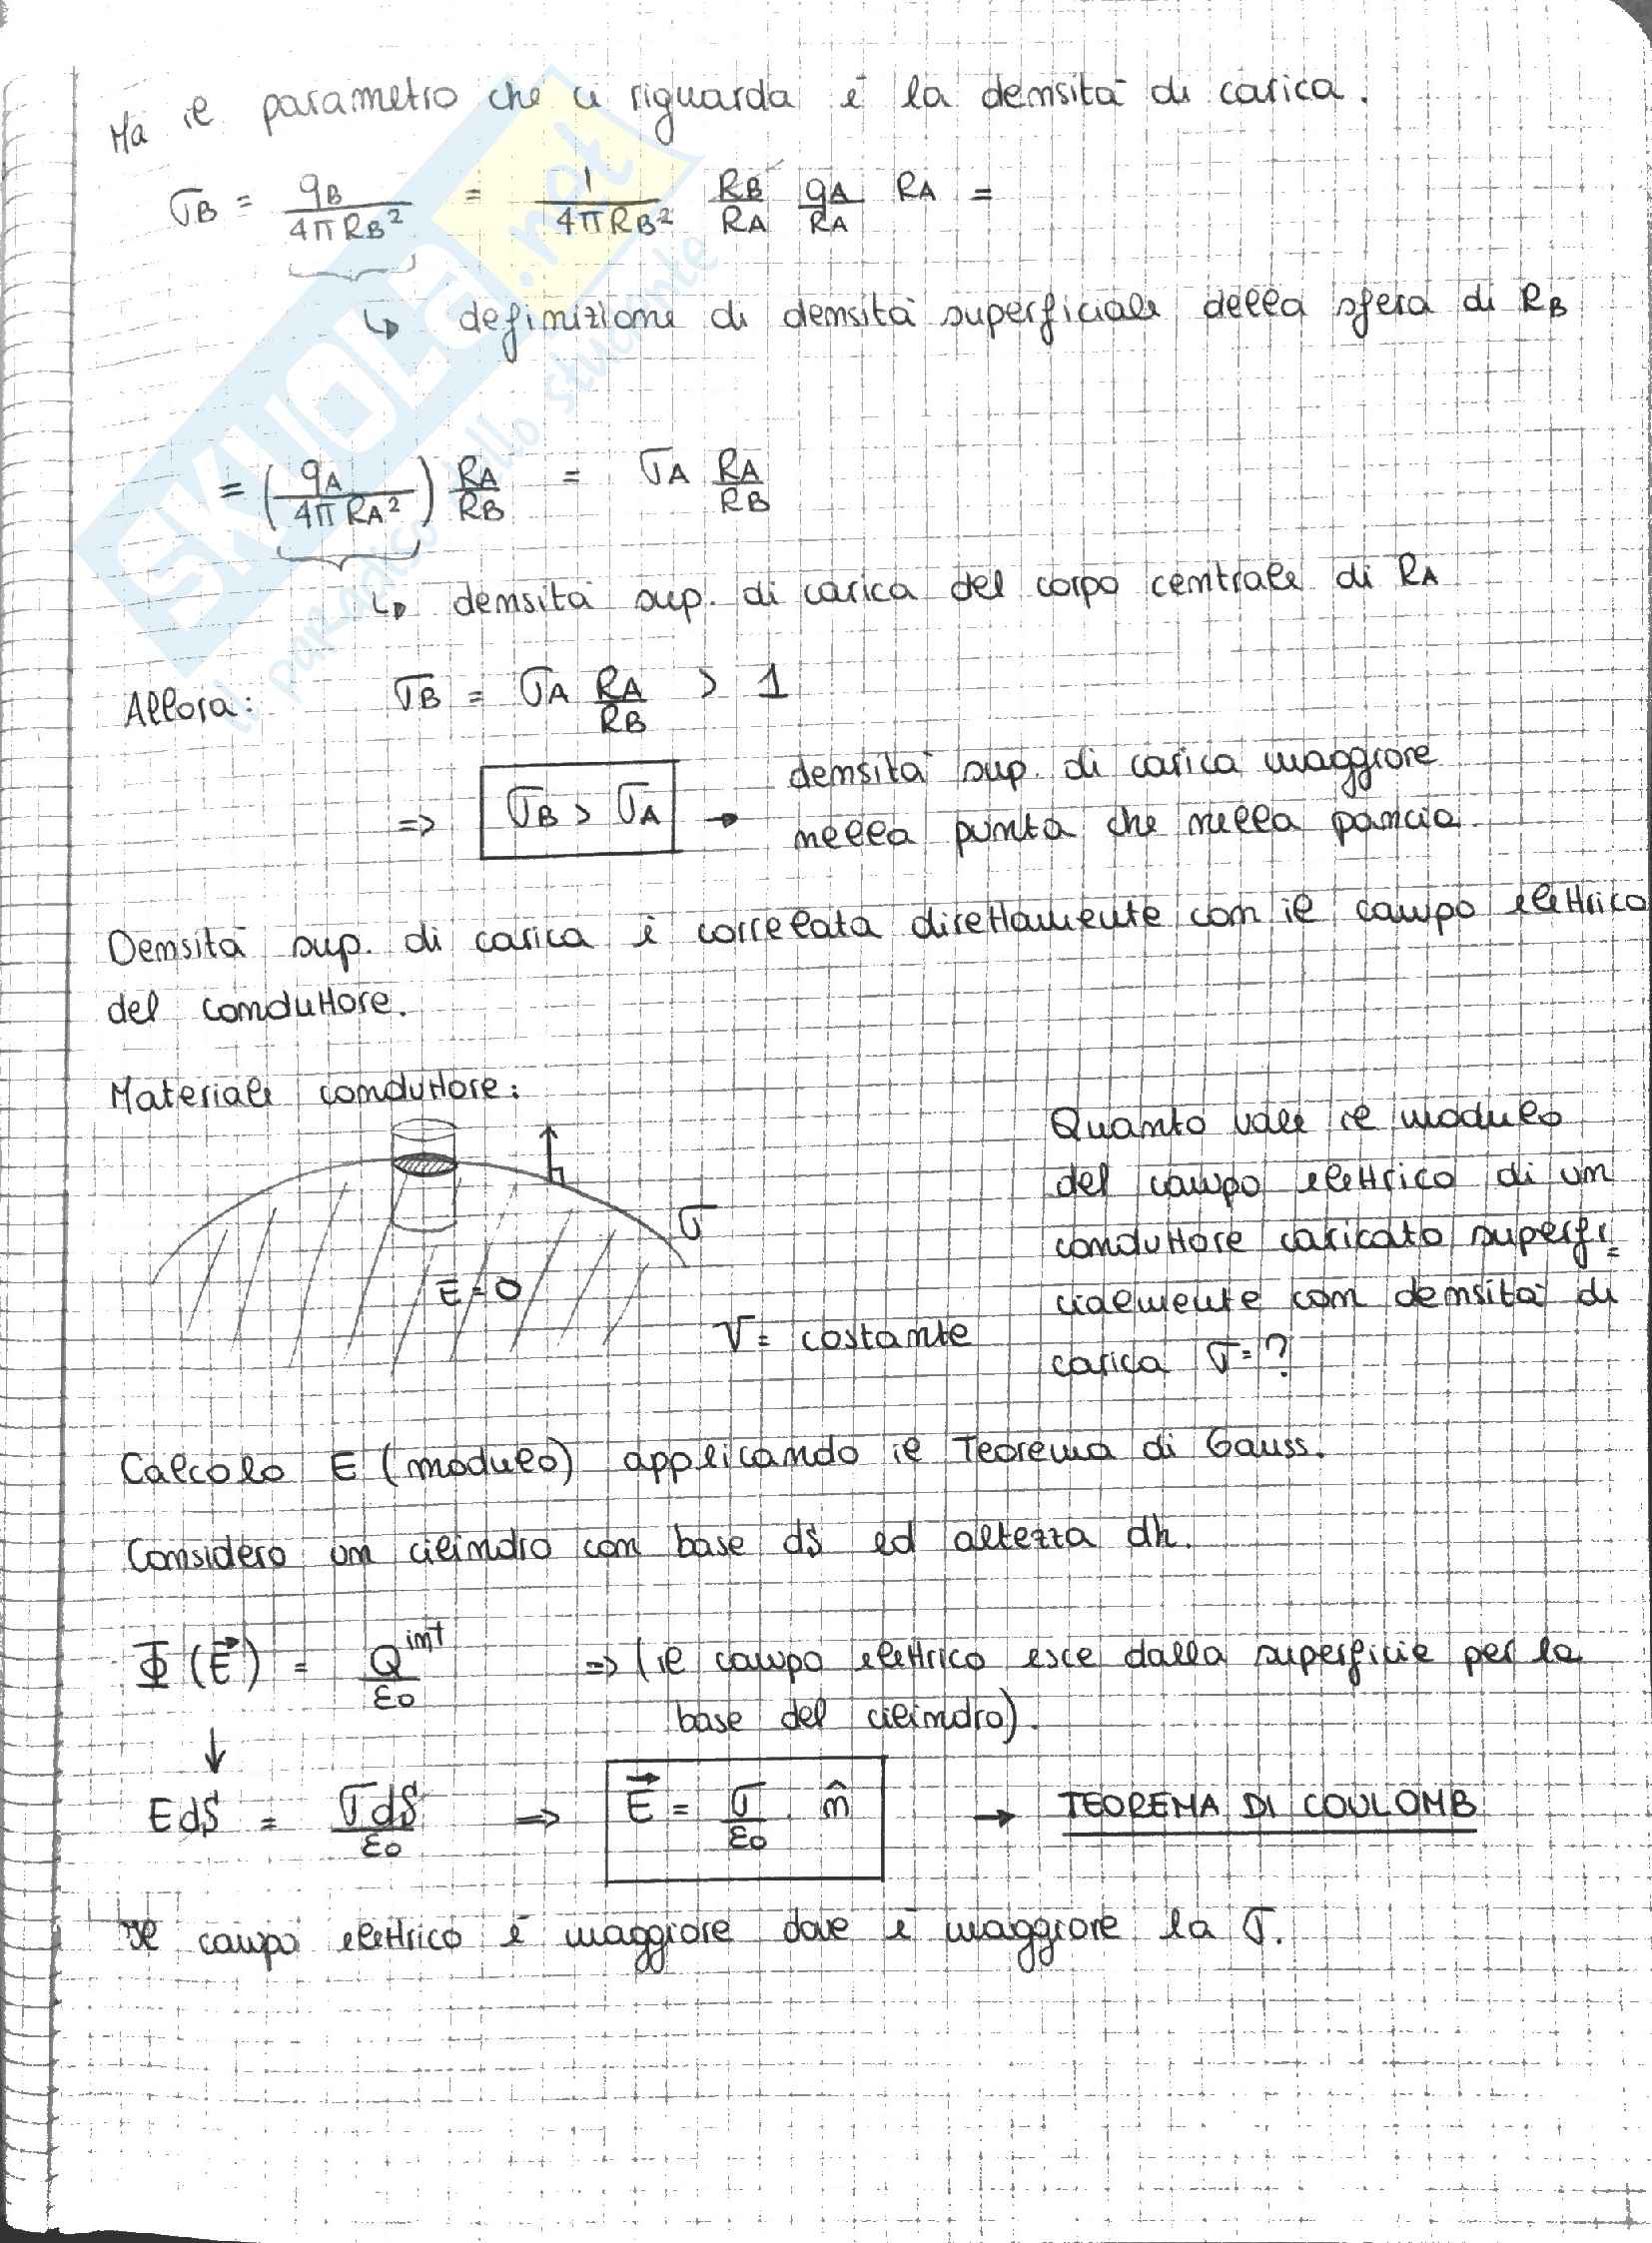 Ma il parametro che ci riguarda è la densità di carica.
σB = qB / 4πRB² = 1 / 4πRB² RB/RA qA/RA RA =
↳ definizione di densità superficiale della sfera di RB
= (qA / 4πRA²) RA/RB = σA RA/RB
↳ densità sup. di carica del corpo centrale di RA
Allora: σB = σA RA/RB > 1
⇒ σB > σA → densità sup. di carica maggiore
nella punta che nella pancia
Densità sup. di carica è correlata direttamente con il campo elettrico
del conduttore.
Materiale conduttore:
σ
E = 0
V = costante
Quanto vale il modulo
del campo elettrico di un
conduttore caricato superfi=
cialmente con densità di
carica σ=?
Calcolo E (modulo) applicando il Teorema di Gauss.
Considero un cilindro con base dS ed altezza dh.
Φ(E⃗) = Q^int / ε0 ⇒ (il campo elettrico esce dalla superficie per la
base del cilindro).
↓
EdS = σdS / ε0 ⇒ E⃗ = σ/ε0 · n̂ → TEOREMA DI COULOMB
Il campo elettrico è maggiore dove è maggiore la σ.
SKUOLA.net
il paradiso dello studente